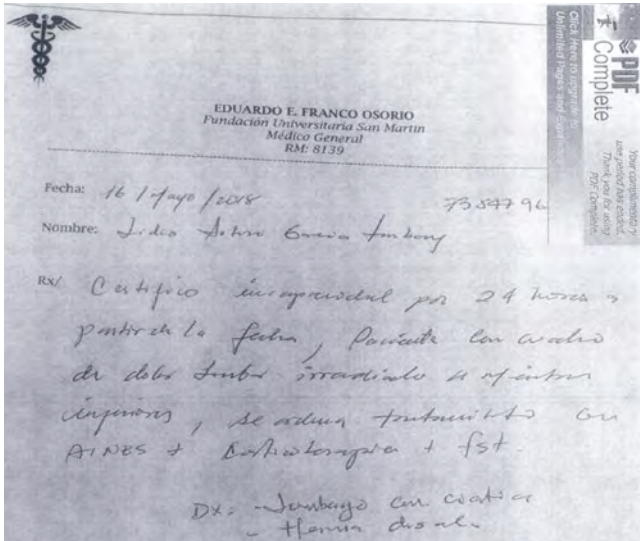 EDUARDO E. FRANCO OSORIO
Fundación Universitaria San Martin
Médico General
RM: 8139
Fecha: 16 / Mayo / 2018
Nombre:
Rx/ Certifico incapacidad por 24 horas a
partir de la fecha, Paciente con cuadro
de dolor lumbar irradiado a miembros
inferiores, se ordena tratamiento con
AINES + + fst.
Dx: - Lumbago con ciatica
- Hernia discal
PDF
Complete
Your complimentary
use period has ended.
Thank you for using
PDF Complete.
Click Here to upgrade to
Unlimited Pages and Expanded